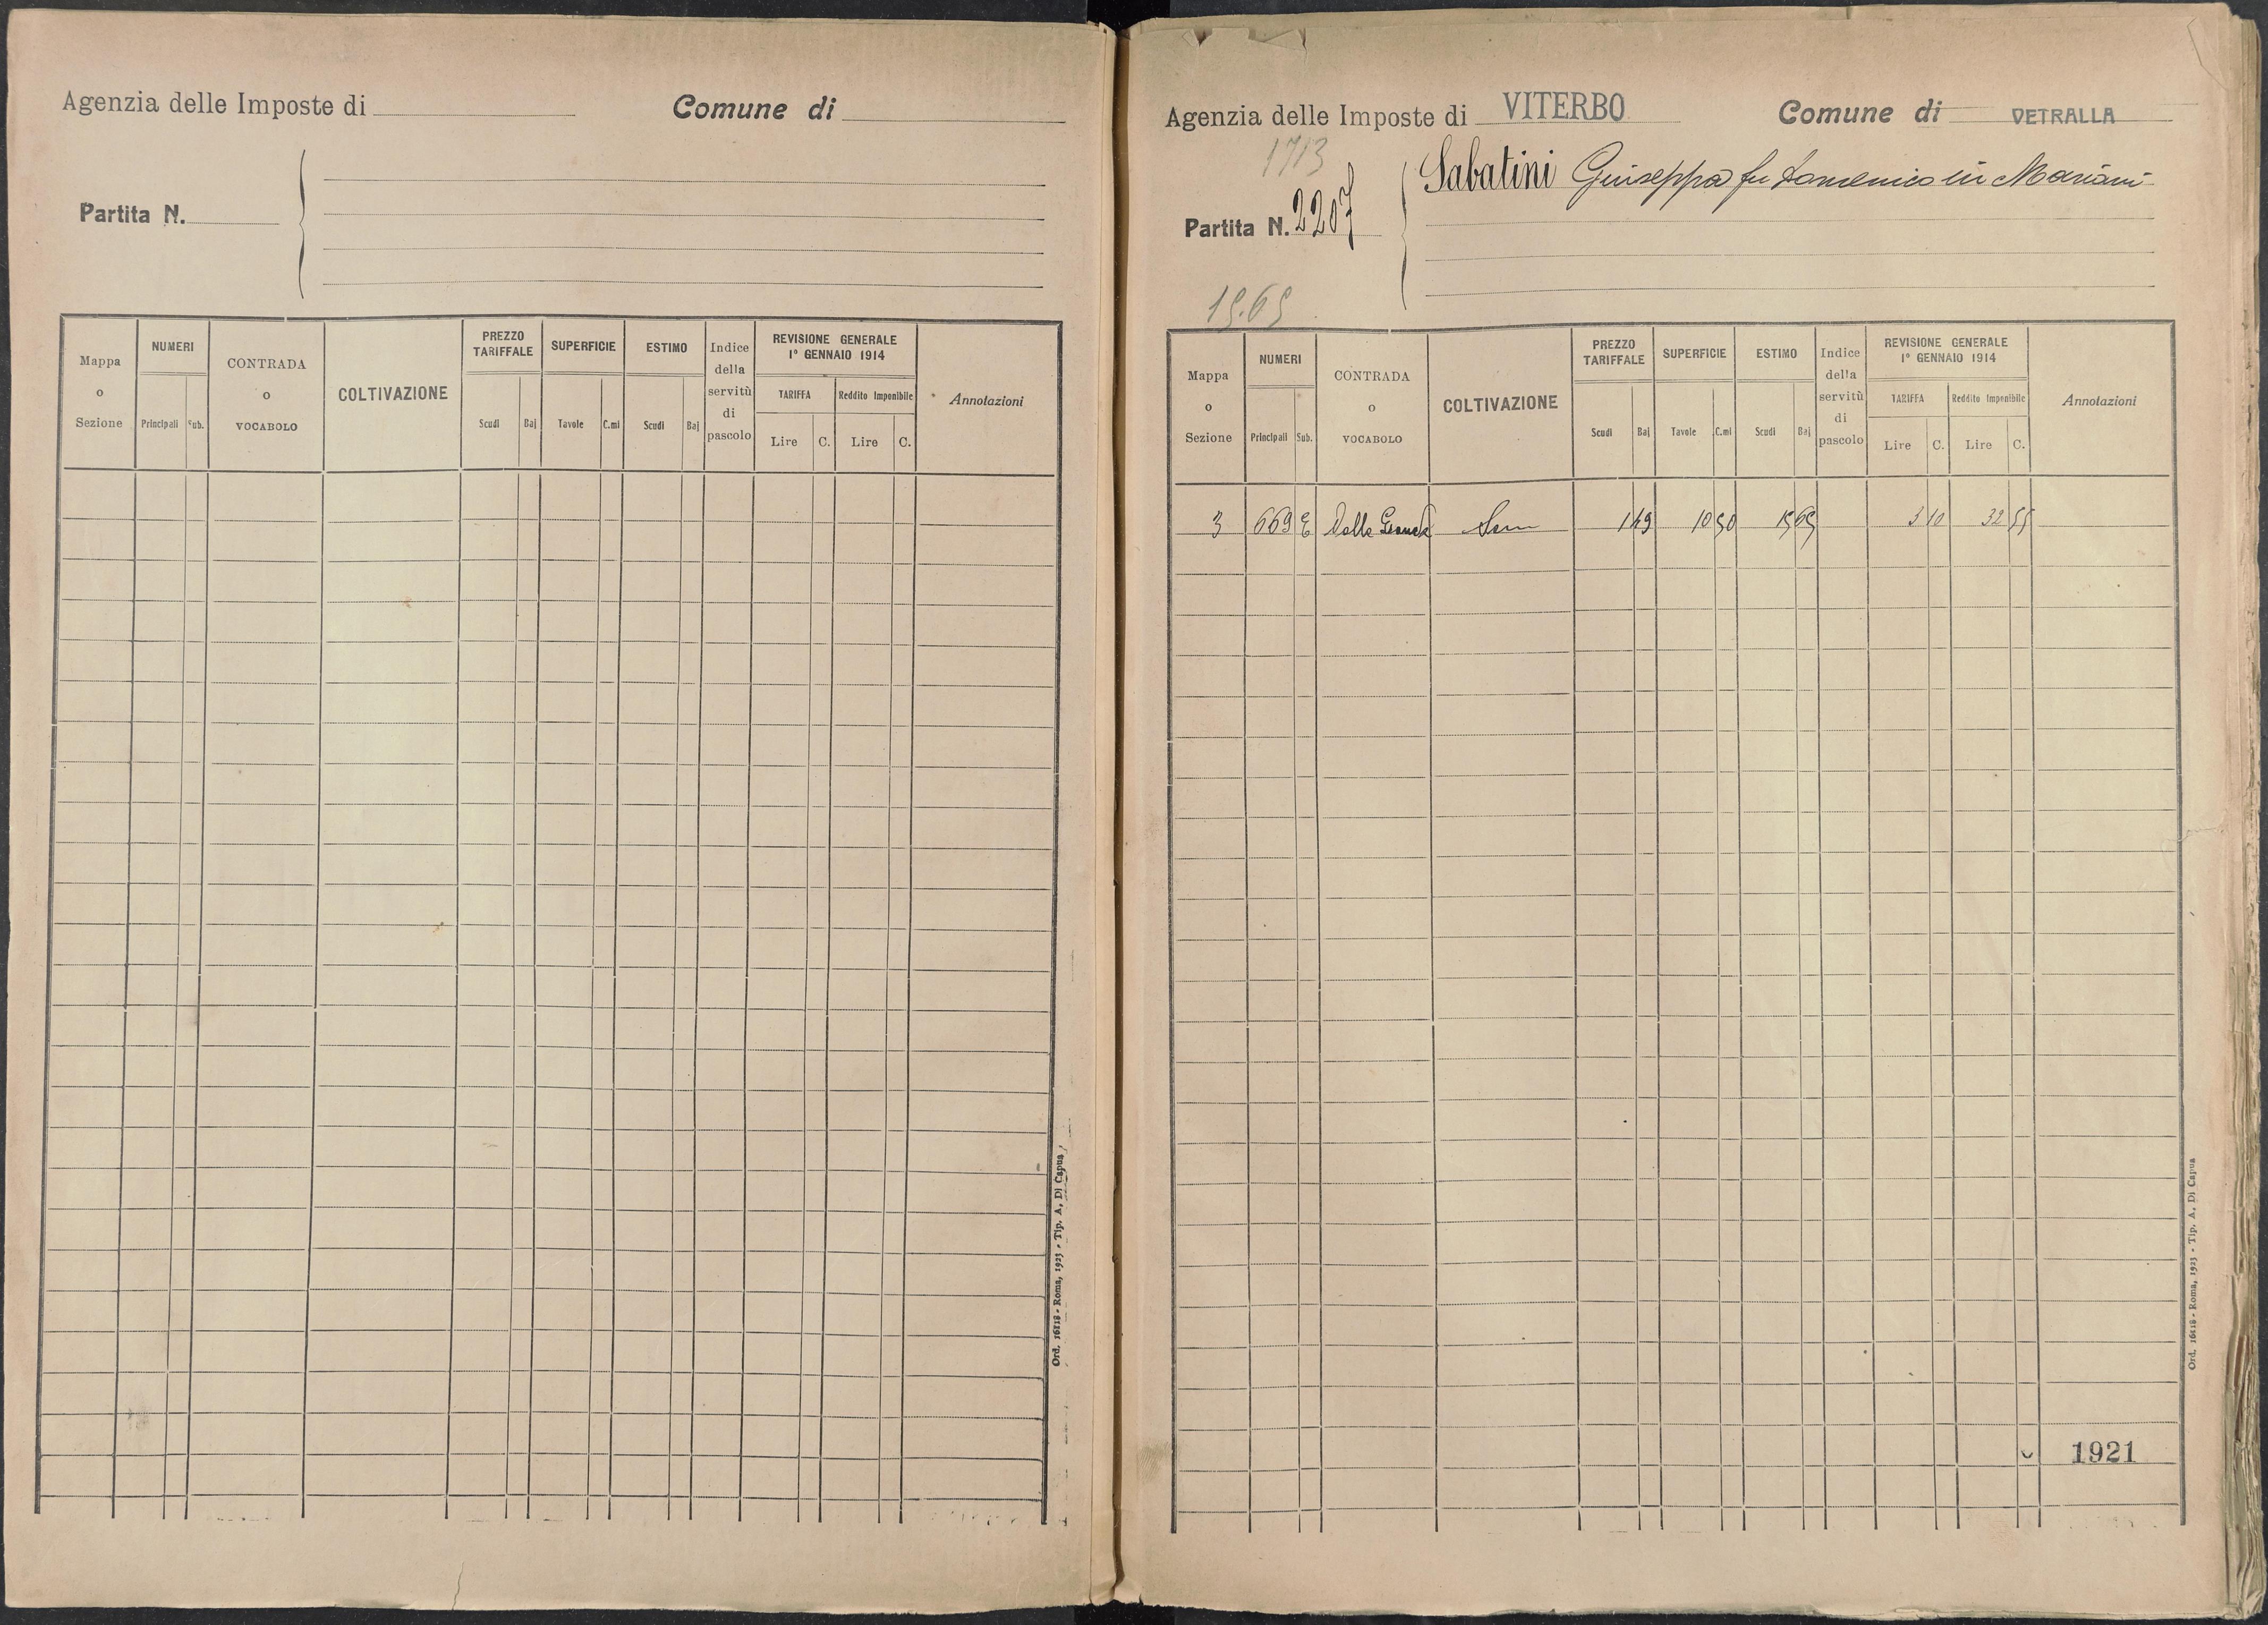 Agenzia delle Imposte di
Comune di
Partita N.
Mappa o Sezione
NUMERI
Principali
Sub.
CONTRADA o VOCABOLO
COLTIVAZIONE
PREZZO TARIFFALE
Scudi
Baj
SUPERFICIE
Tavole
C.mi
ESTIMO
Scudi
Baj
Indice della servitù di pascolo
REVISIONE GENERALE
1° GENNAIO 1914
TARIFFA
Lire
C.
Reddito Imponibile
Lire
C.
Annotazioni
Ord. 16118 - Roma, 1923 - Tip. A. Di Capua
Agenzia delle Imposte di VITERBO
Comune di VETRALLA
1713
Sabatini Giuseppa fu Domenico in Mariani
Partita N. 2207
15.65
Mappa o Sezione
NUMERI
Principali
Sub.
CONTRADA o VOCABOLO
COLTIVAZIONE
PREZZO TARIFFALE
Scudi
Baj
SUPERFICIE
Tavole
C.mi
ESTIMO
Scudi
Baj
Indice della servitù di pascolo
REVISIONE GENERALE
1° GENNAIO 1914
TARIFFA
Lire
C.
Reddito Imponibile
Lire
C.
Annotazioni
3 669 Sem 1 49 10 50 15 65 3 10 32 55
1921
Ord. 16118 - Roma, 1923 - Tip. A. Di Capua